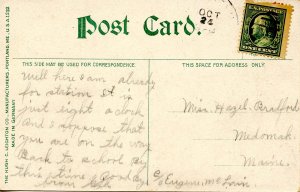 Post Card.
OCT
24
THIS SIDE MAY BE USED FOR CORRESPONDENCE
THIS SPACE FOR ADDRESS ONLY.
THE HUGH C. LEIGHTON CO., MANUFACTURERS, PORTLAND, ME., U.S.A.
MADE IN GERMANY
Well here I am already
for station it is
just eight o clock
and I suppose that
you are on the way
Back to school By
this time Good by
from
Miss Hazel Bradford
Medomak
Maine.
c/o Eugene McLain
ONE CENT